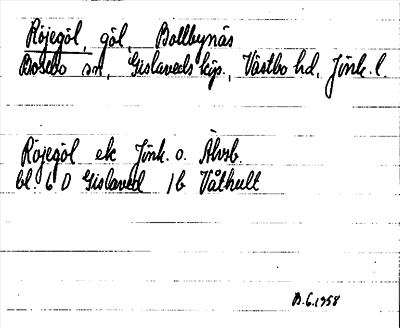 Röjegöl, göl, Bollbynäs
Bosebo sn, Gislaveds köp., Västbo hd, Jönk. l.
Röjegöl ek Jönk. o. Älvsb.
bl. 6 D Gislaved 1b Våthult
B.G. 1958